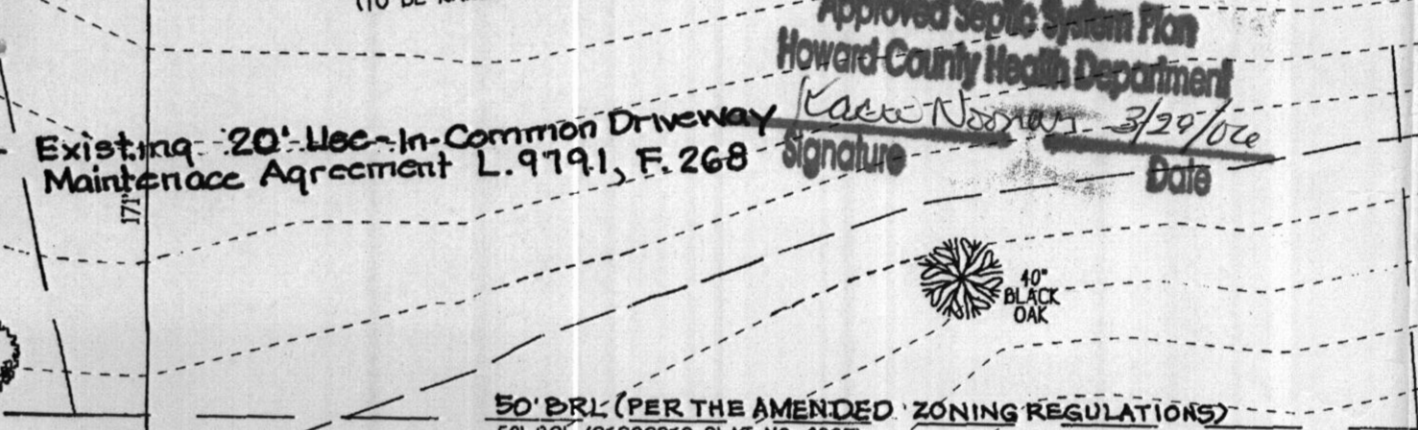 (TO BE
Approved Septic System Plan
Howard County Health Department
3/29/06
Signature
Date
Existing 20' Use-In-Common Driveway
Maintenace Agreement L.9791, F.268
171'
40"
BLACK
OAK
50' BRL (PER THE AMENDED ZONING REGULATIONS)